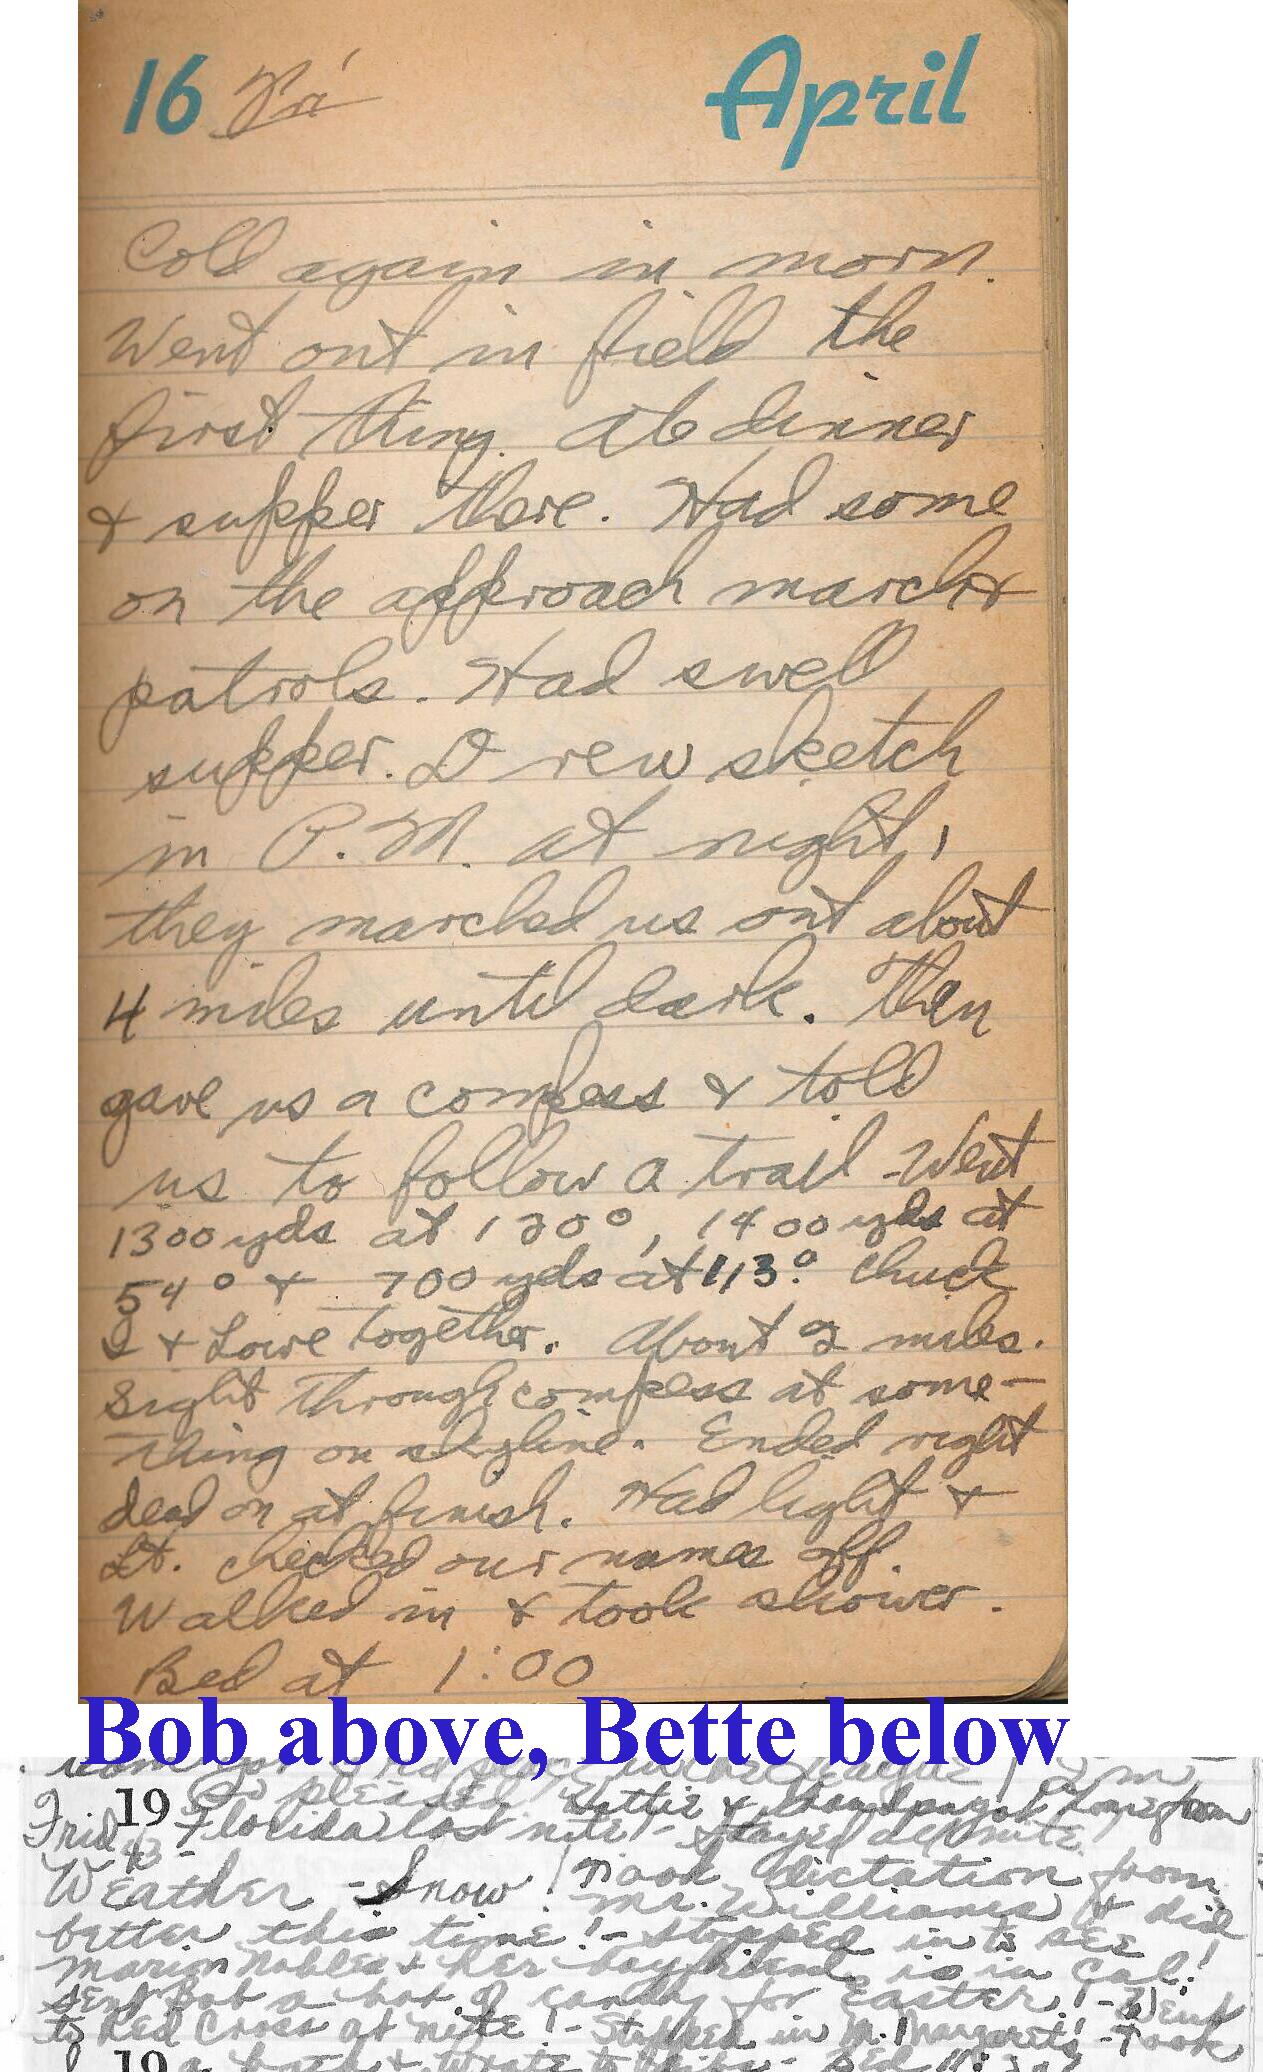 16 Fri April
Cold again in morn.
Went out in field the
first thing. Ate dinner
& supper there. Had some
on the approach march &
patrols. Had swell
supper. Drew sketch
in P.M. at night,
they marched us out about
4 miles until dark. Then
gave us a compass & told
us to follow a trail - Went
1300 yds at 120°, 1400 yds at
54° & 700 yds at 113°. Chuck
I & Lowe together. About 2 miles.
Sight through compass at some-
thing on skyline. Ended right
dead on at finish. Had light &
Lt. checked our names off.
Walked in & took shower.
Bed at 1:00
Bob above, Bette below
I'm
so pleased, & Grandpa got home from
19
Frid - Florida last nite! - Stayed all nite!
43
Weather - Snow! Took dictation from
Mr. Williams & did
better this time! - Stopped in to see
Marion Nobles & her boyfriend is in Cal.!
Sent Bob a box of candy for Easter! - Went
to Red Cross at nite! - Stopped in M. Margarets! - Took
19 a bath & wrote to - Bed 11: